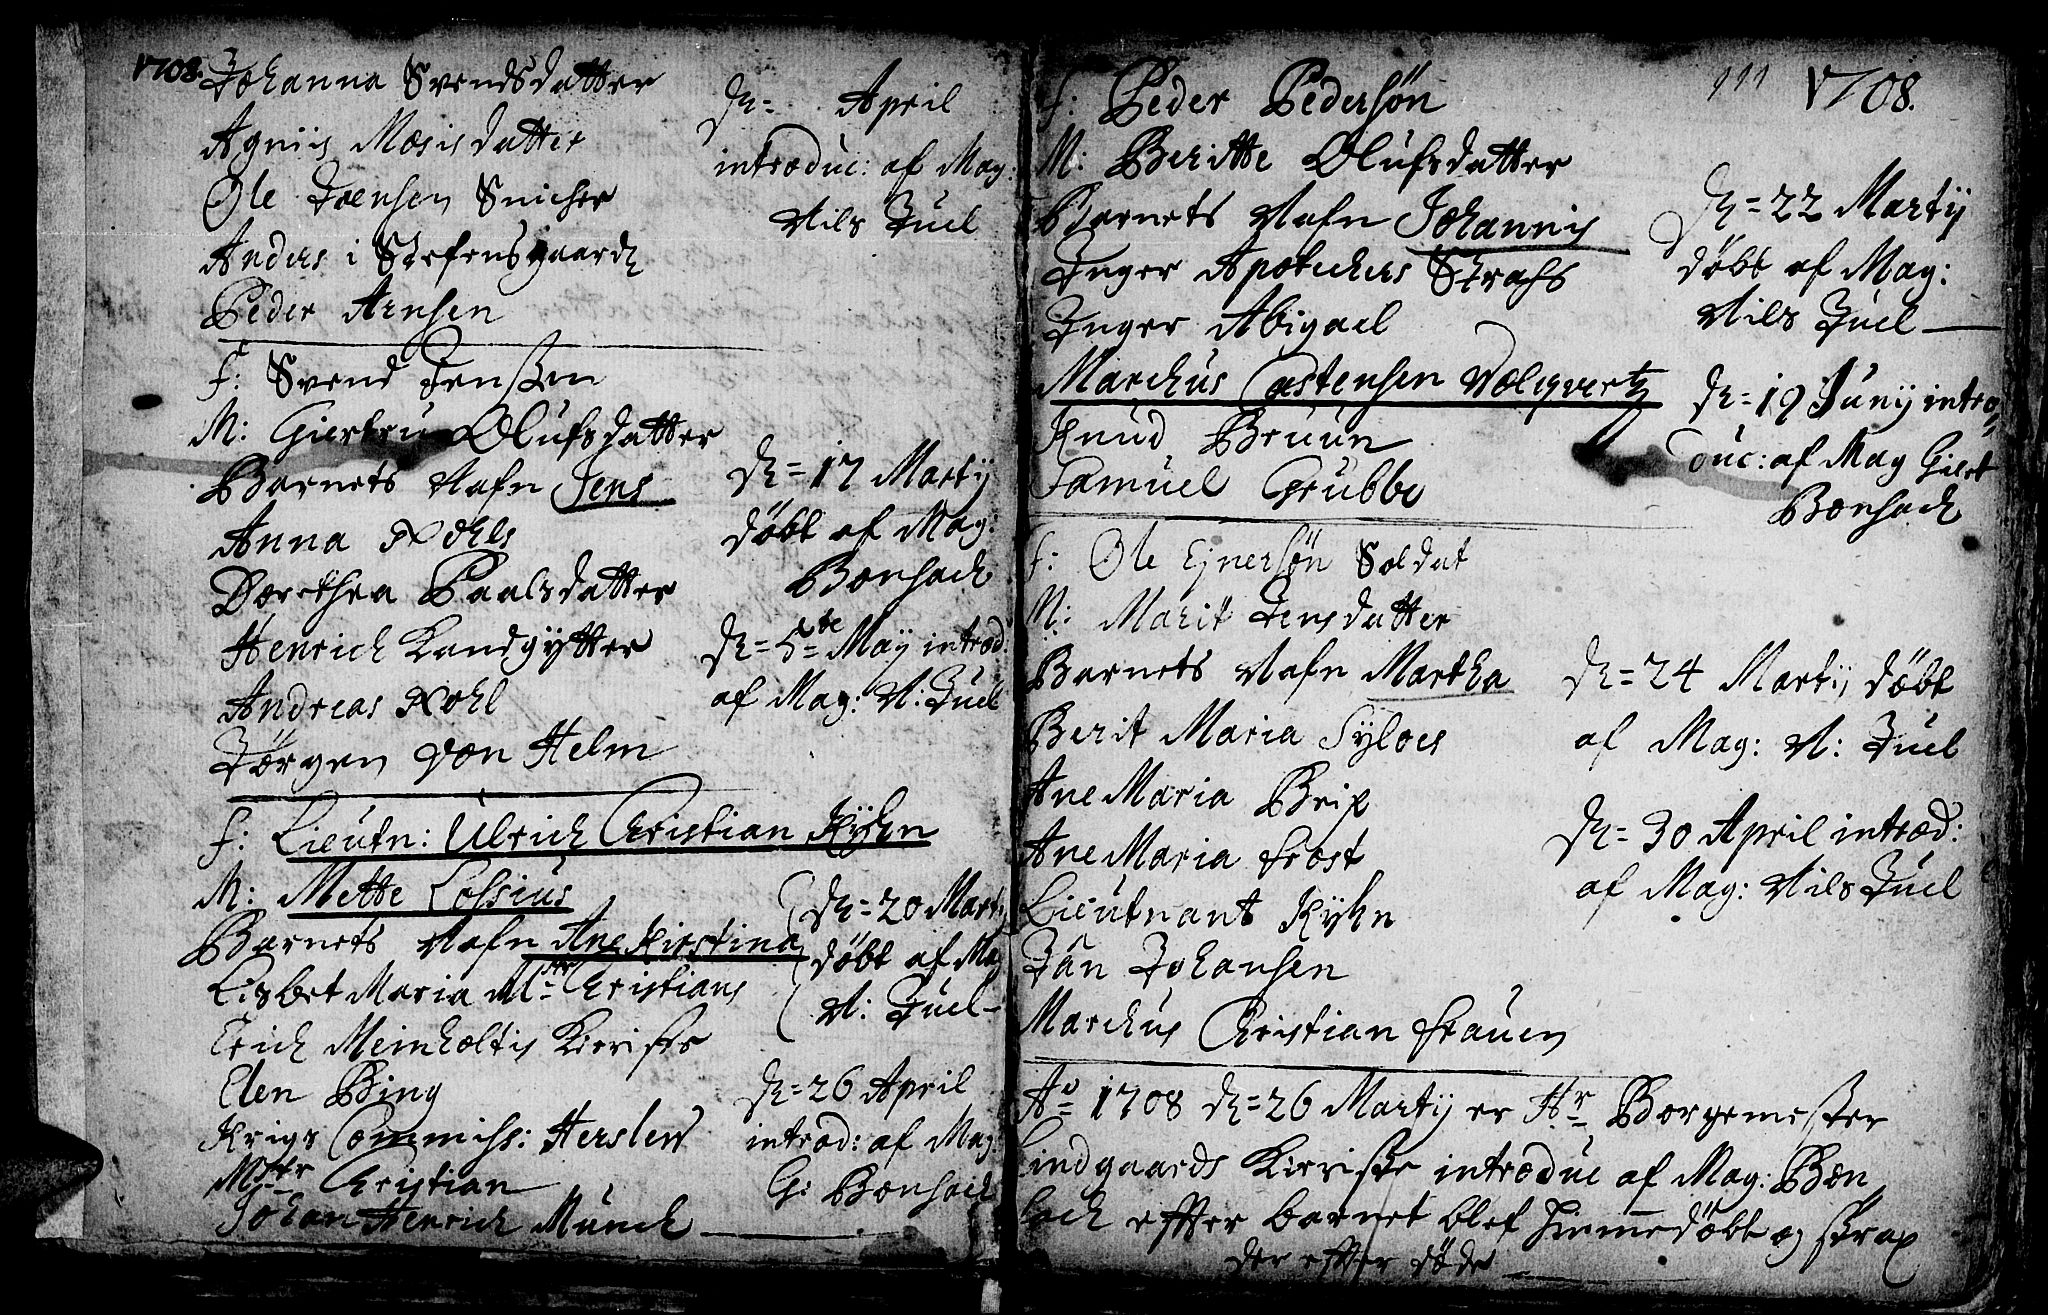 1708.
Johanna Svendsdatter
Agniis Mosisdatter
Ole Joensen Snicher
Anders i Stefensgaard
Peder Arnsen
D: April
introduc: af Mag:
Nils Juel
F: Svend Jenssen
M: Giertru Olufsdatter
Barnets Nafn Jens
Anna Kohls
Dorethea Paalsdatter
Henrich Kandgytter
Andreas Kohl
Jörgen von Helm
D: = 17 Martij
döbt af Mag:
Bonsach
D: = 5te Maij introd:
af Mag: N: Juel
F: Lieutn: Ulrich Christian Kyhn
M: Mette Cossius
Barnets Nafn Ane Kirstina
Lisbet Maria Mstr Christians
Erich Meinholtis Kieriste
Elen Bing
Krigs Commiss: Herslew
Mstr Christian
Johan Henrich Münch
D: = 20 Martij
döbt af Mag
N: Juel
D: = 26 April
introd: af Mag:
G: Bonsach
111 1708.
F: Peder Pedersön
M: Beritte Olufsdatter
Barnets Nafn Johannis
Inger Apotechers Strahs
Inger Abigael
Marchus Castensen Volqvertz
Knud Bruun
Samuel Grubbe
D: = 22 Martij
döbt af Mag:
Nils Juel
D: = 19 Junij intro
duc: af Mag Giert
Bonsach
F: Ole Ejnersön Soldat
M: Marit Jensdatter
Barnets Nafn Martha
Berit Maria Syloes
Ane Maria Brix
Ane Maria Frost
Lieutnant Kyhn
Jan Johansen
Marchus Christian Frauen
D: = 24 Martij döbt
af Mag: N: Juel
D: = 30 April introd:
af Mag: Nils Juel
Ao 1708 D: = 26 Martij er Hr Borgemester
Lindgaards Kieriste introduc af Mag: Bon
sach efter barnet blef hiemmedöbt og strax
der efter döde